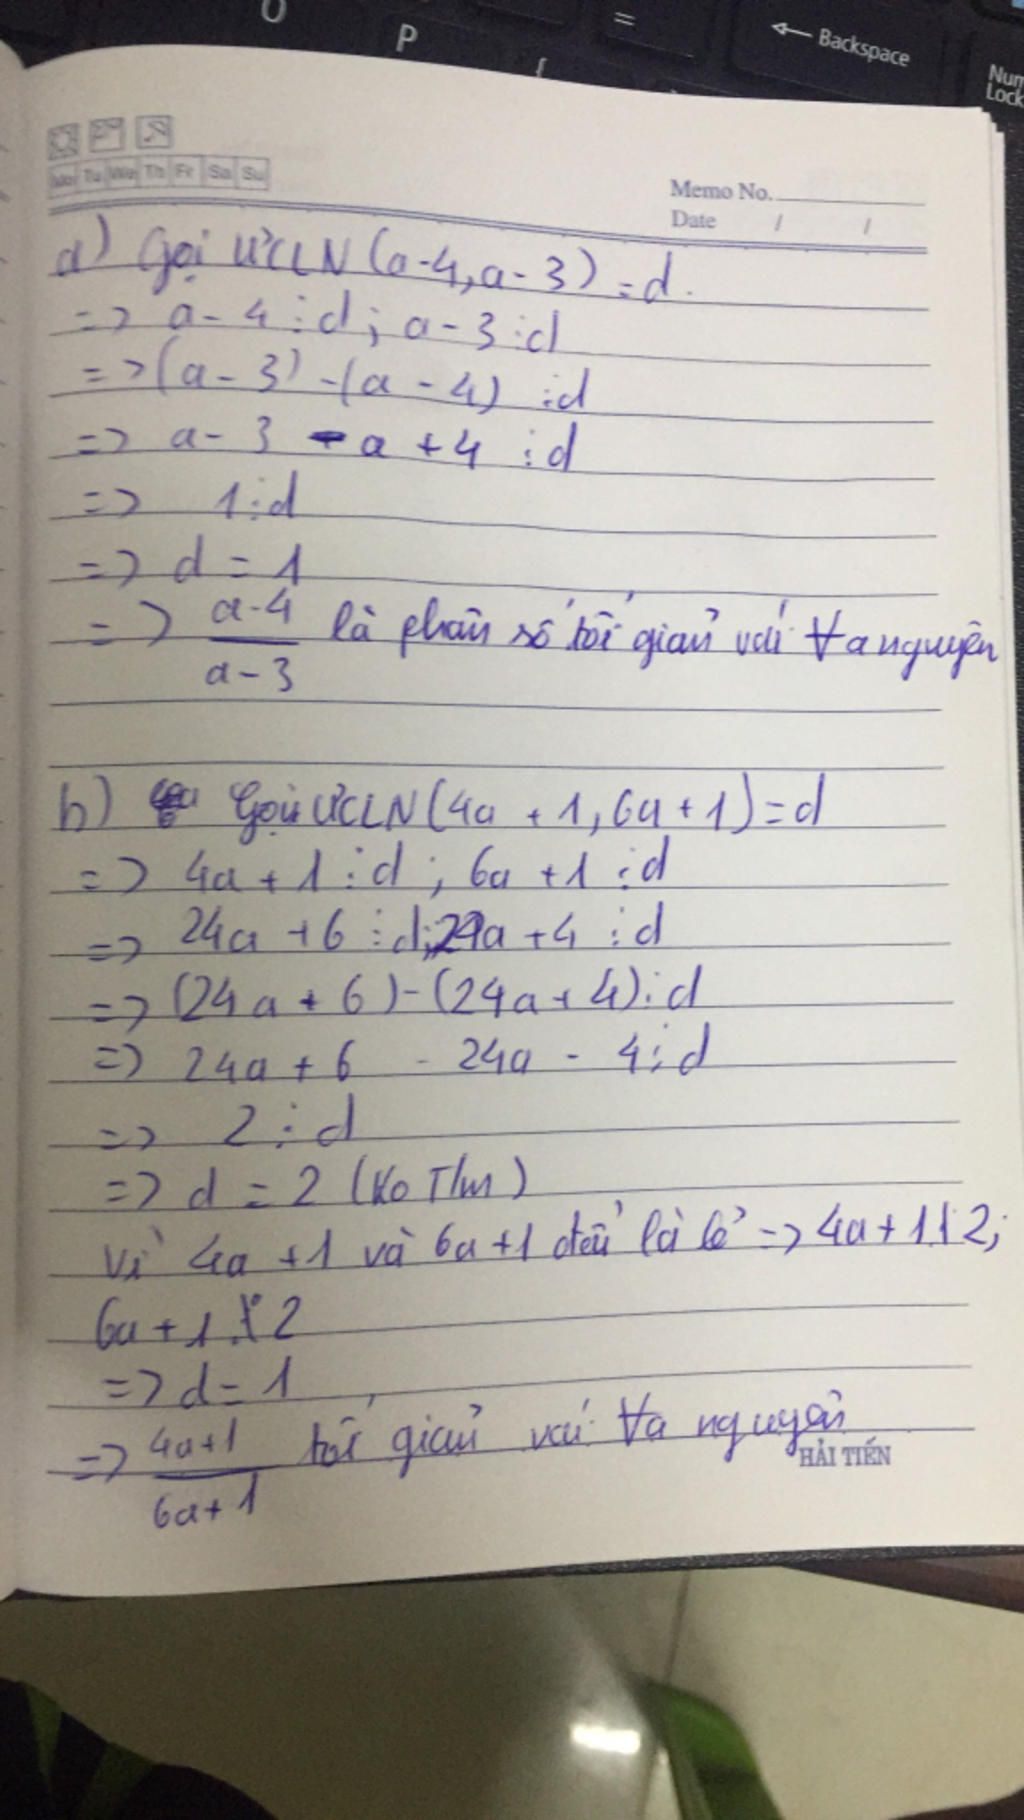 O
P
=
{
← Backspace
Num Lock
Mo Tu We Th Fr Sa Su
Memo No.
Date / /
a) Gọi ƯCLN (a-4, a-3) = d.
=> a - 4 ⋮ d ; a - 3 ⋮ d
=> (a - 3) - (a - 4) ⋮ d
=> a - 3 - a + 4 ⋮ d
=> 1 ⋮ d
=> d = 1
=> a-4 / a-3 là phân số tối giản với ∀a nguyên
b) Gọi ƯCLN (4a + 1, 6a + 1) = d
=> 4a + 1 ⋮ d ; 6a + 1 ⋮ d
=> 24a + 6 ⋮ d ; 24a + 4 ⋮ d
=> (24a + 6) - (24a + 4) ⋮ d
=> 24a + 6 - 24a - 4 ⋮ d
=> 2 ⋮ d
=> d = 2 (Ko T/m)
Vì 4a + 1 và 6a + 1 đều là lẻ => 4a + 1 ⋮̸ 2;
6a + 1 ⋮̸ 2
=> d = 1
=> 4a+1 / 6a+1 tối giản với ∀a nguyên
HẢI TIẾN